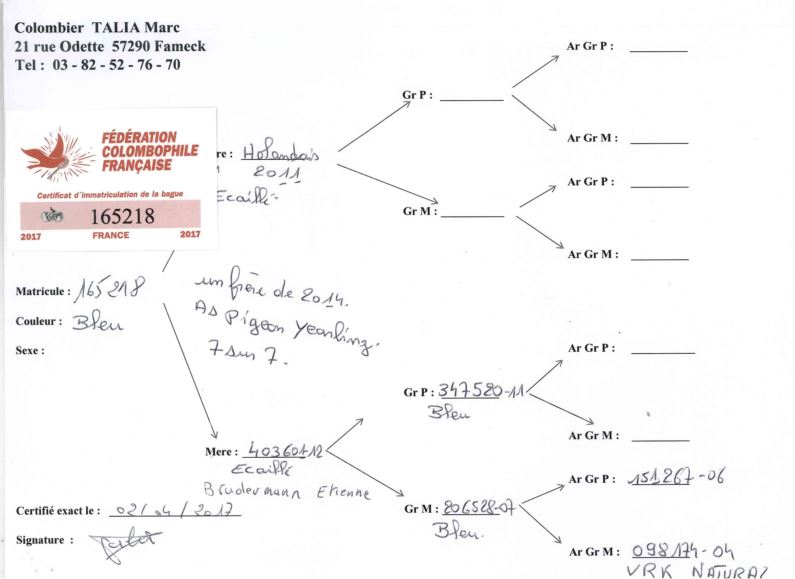 Colombier TALIA Marc
21 rue Odette 57290 Fameck
Tel : 03 - 82 - 52 - 76 - 70
FÉDÉRATION
COLOMBOPHILE
FRANÇAISE
Certificat d'immatriculation de la bague
165218
2017 FRANCE 2017
re : Holandais
2011
Ecaillé
Gr P :
Gr M :
Ar Gr P :
Ar Gr M :
Ar Gr P :
Ar Gr M :
Matricule : 165218
Couleur : Bleu
Sexe :
un frère de 2014.
As Pigeon Yearling.
7 sur 7.
Mere : 403601-12
Ecaillé
Brudermann Etienne
Gr P : 347520-11
Bleu
Gr M : 206528-07
Bleu.
Ar Gr P :
Ar Gr M :
Ar Gr P : 151267-06
Ar Gr M : 098174-04
VRK NATURAZ
Certifié exact le : 02/04/2017
Signature :